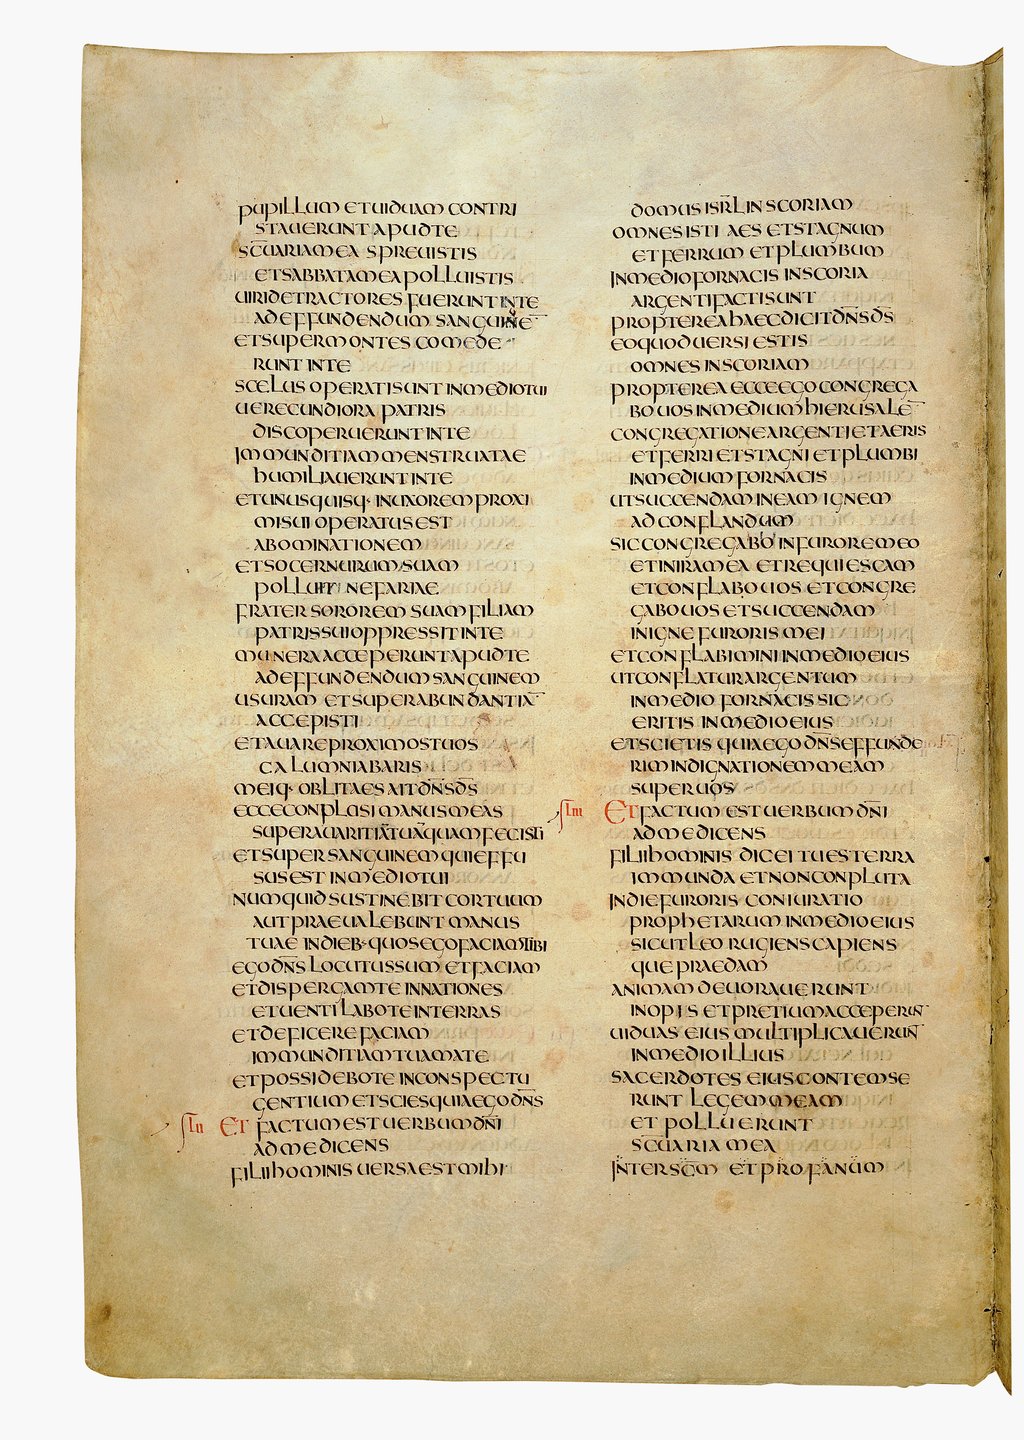 pupillum et uiduam contri
stauerunt apud te
sc̅uaria mea spreuistis
et sabbata mea polluistis
uiri detractores fuerunt in te
ad effundendum sanguine̅
et super montes comede
runt in te
scelus operati sunt in medio tui
uerecundiora patris
discoperuerunt in te
immunditiam menstruatae
humiliauerunt in te
et unusquisq· in uxorem proxi
mi sui operatus est
abominationem
et socer nurum suam
polluit nefariae
frater sororem suam filiam
patris sui oppressit in te
munera acceperunt apud te
ad effundendum sanguinem
usuram et superabundantia̅
accepisti
et auare proximos tuos
calumniabaris
meiq· oblita es ait dn̅s ds̅
ecce conplasi manus meas
super auaritia̅ tua̅ quam fecisti
et super sanguinem qui effu
sus est in medio tui
numquid sustinebit cor tuum
aut praeualebunt manus
tuae in dieb· quos ego faciam tibi
ego dn̅s locutus sum et faciam
et dispergam te in nationes
et uentilabo te in terras
et deficere faciam
immunditiam tuam a te
et possidebo te in conspectu
gentium et scies quia ego dn̅s
Et factum est uerbum dn̅i
ad me dicens
fili hominis uersa est mihi
domus isr̅l in scoriam
omnes isti aes et stagnum
et ferrum et plumbum
in medio fornacis in scoria
argenti facti sunt
propterea haec dicit dn̅s ds̅
eo quod uersi estis
omnes in scoriam
propterea ecce ego congrega
bo uos in medium hierusale̅
congregatione argenti et aeris
et ferri et stagni et plumbi
in medium fornacis
ut succendam in eam ignem
ad conflandum
sic congregabo in furore meo
et in ira mea et requiescam
et conflabo uos et congre
gabo uos et succendam
in igne furoris mei
et conflabimini in medio eius
ut conflatur argentum
in medio fornacis sic
eritis in medio eius
et scietis quia ego dn̅s effunde
rim indignationem meam
super uos
Et factum est uerbum dn̅i
ad me dicens
fili hominis dic ei tu es terra
immunda et non conpluta
in die furoris coniuratio
prophetarum in medio eius
sicut leo rugiens capiens
que praedam
animam deuorauerunt
in opis et pretium acceperun̅
uiduas eius multiplicauerun̅
in medio illius
sacerdotes eius contemse
runt legem meam
et polluerunt
sc̅uaria mea
inter sc̅m et profanum